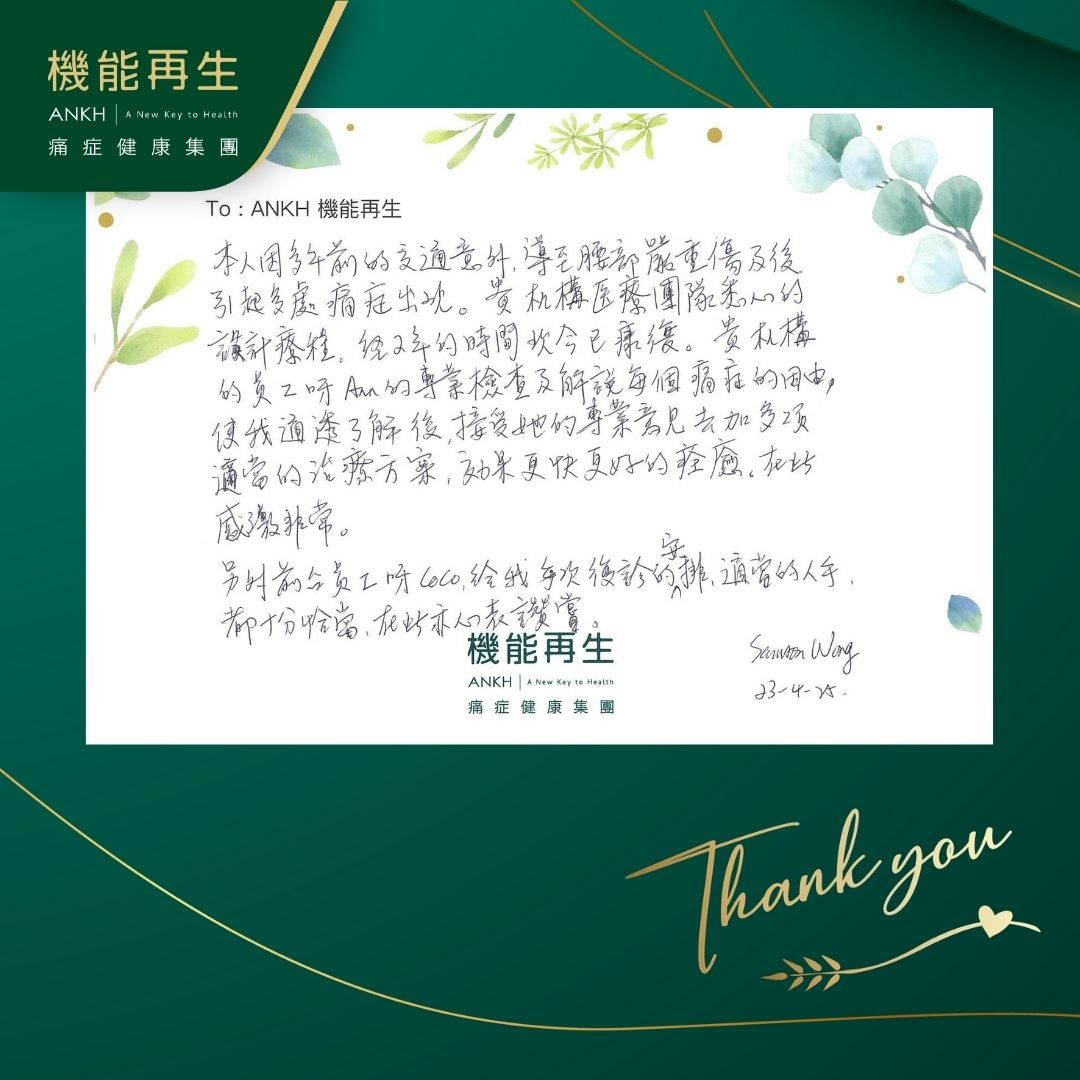 機能再生
ANKH | A New Key to Health
痛症健康集團
To : ANKH 機能再生
本人因多年前的交通意外，導至腰部嚴重傷及後
引起多處痛症出現。貴机構医療團隊悉心的
設計療程，經2年的時間現今已康復。貴机構
的員工呀Ann的專業檢查及解説每個痛症的因由，
使我通透了解後，接受她的專業意見去加多項
適當的治療方案，効果更快更好的痊癒。在此
感激非常。
另外前台員工呀CoCo，給我每次復診的安排，適當的人手，
都十分恰當，在此亦心表讚賞。
機能再生
ANKH | A New Key to Health
痛症健康集團
Wong
23-4-25.
Thank you